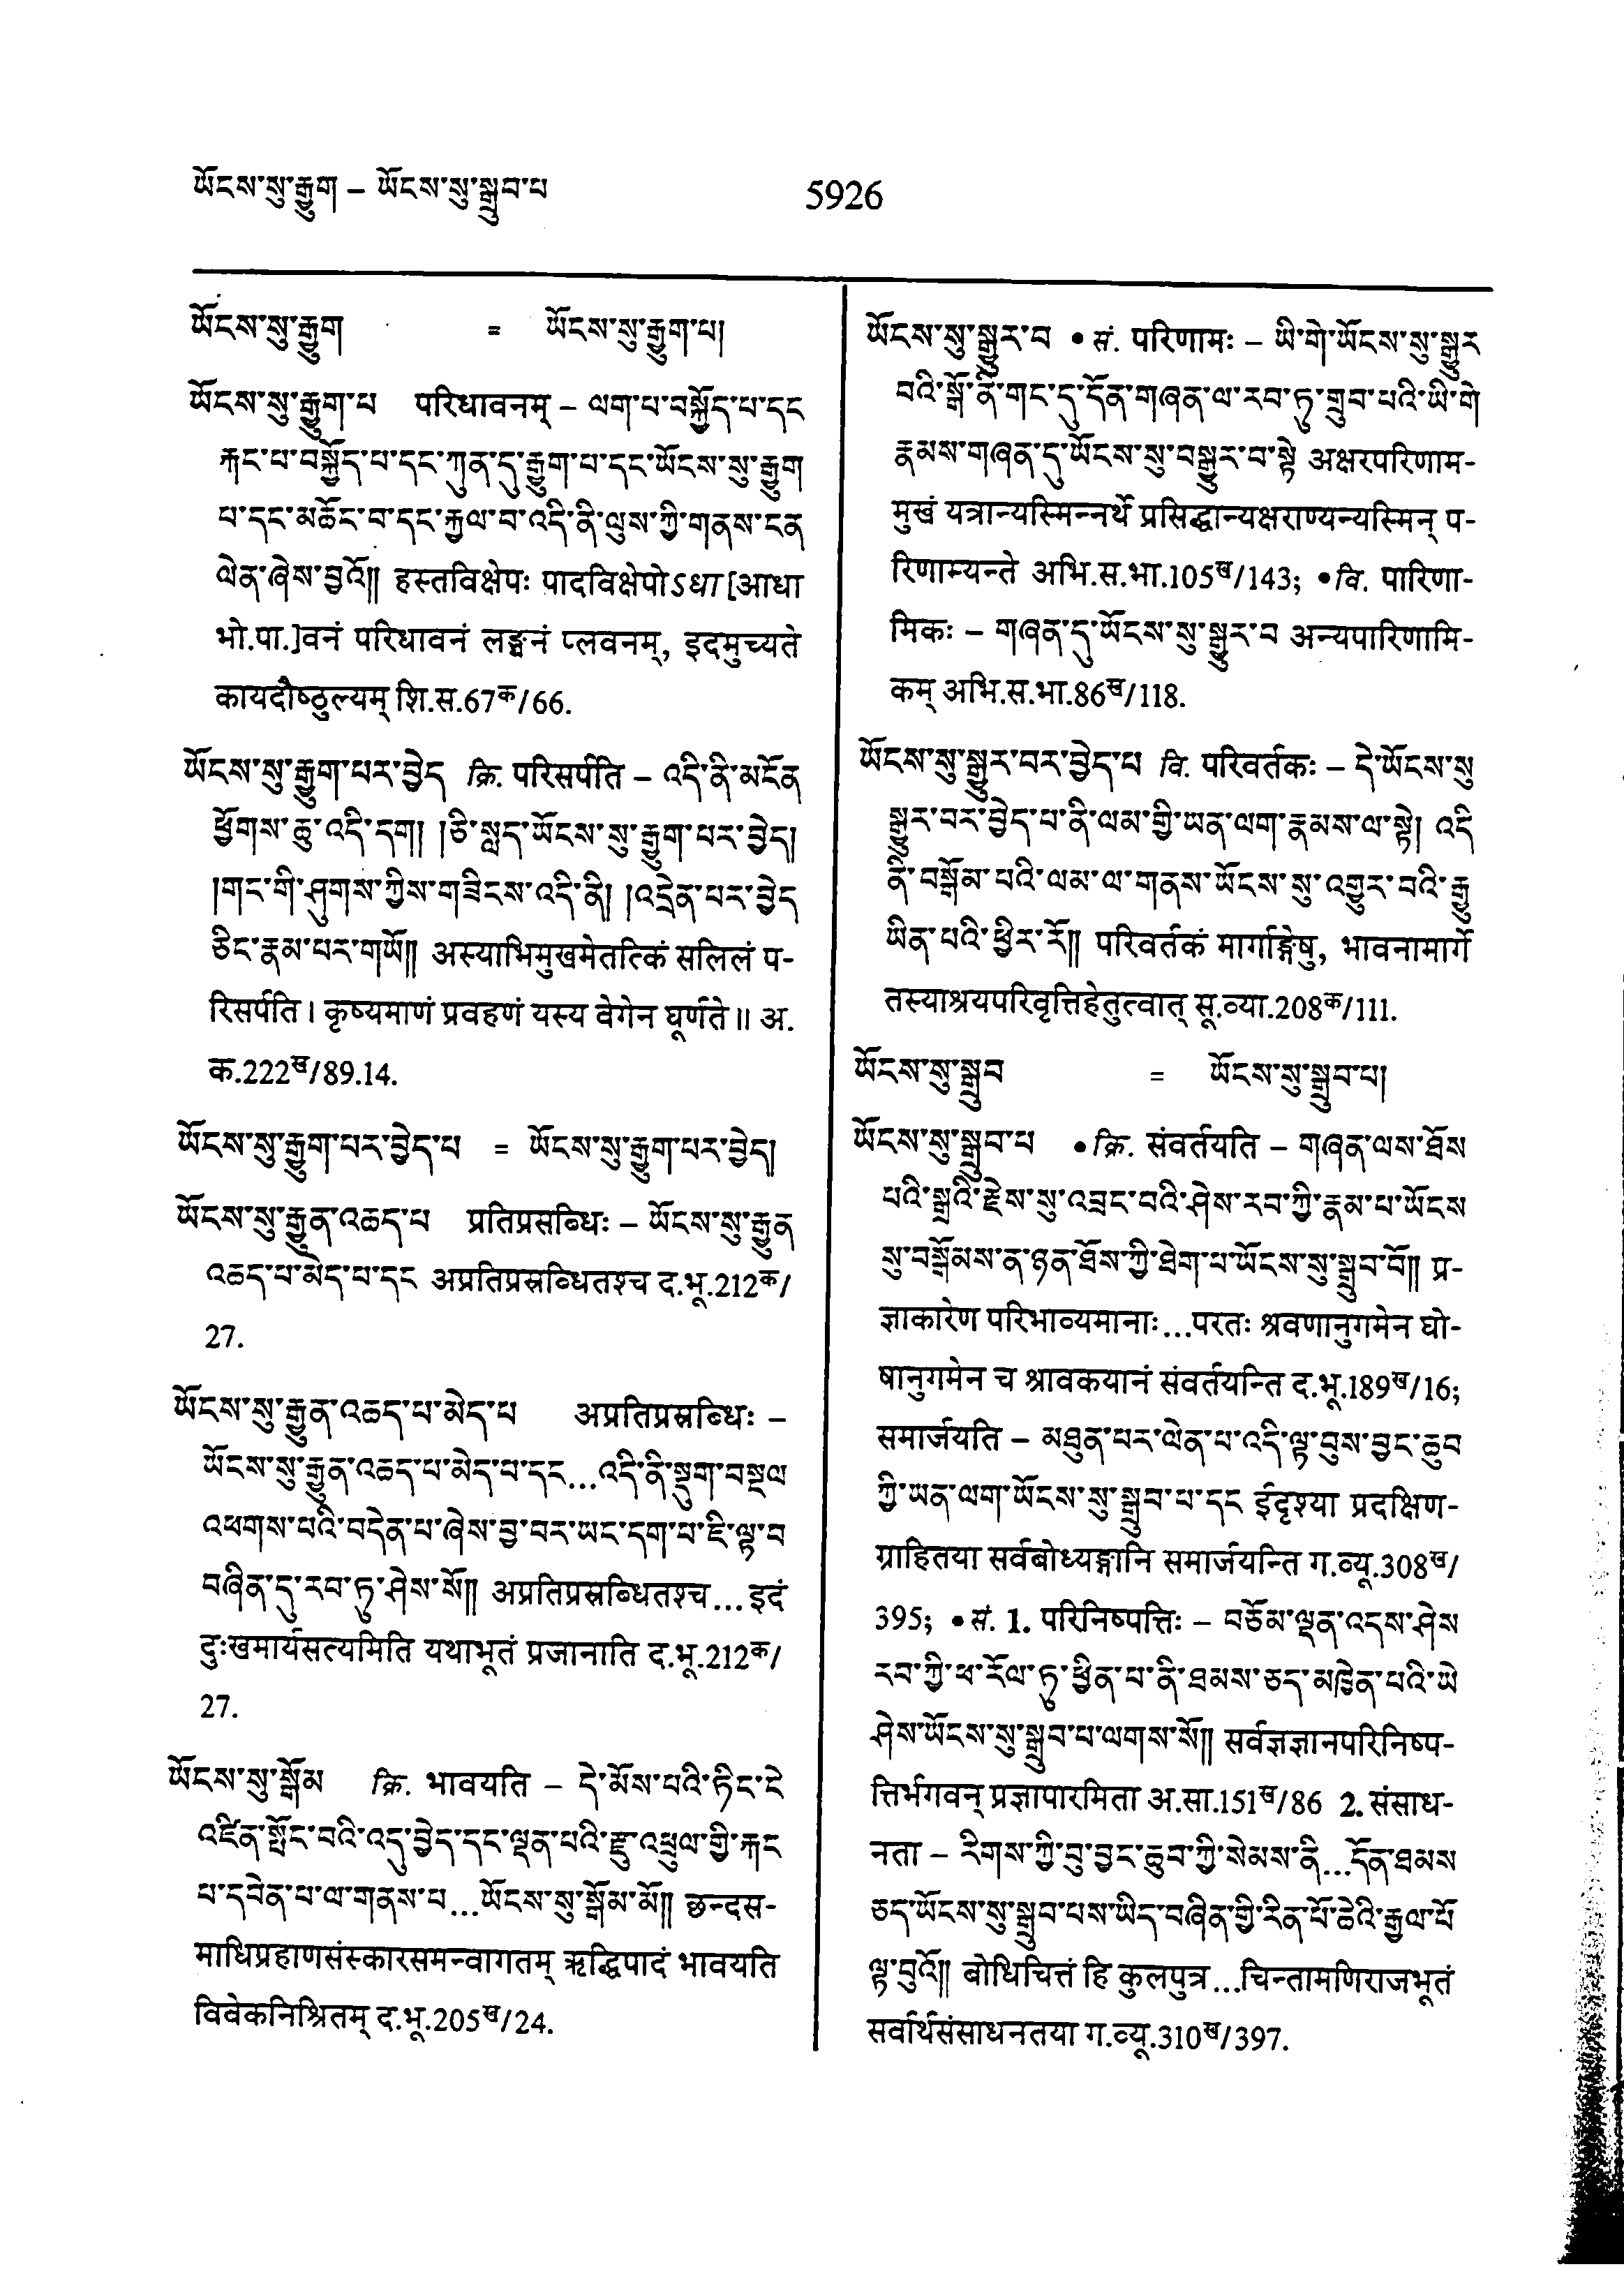 ཡོངས་སུ་རྒྱུག – ཡོངས་སུ་སྒྲུབ་པ
5926
ཡོངས་སུ་རྒྱུག = ཡོངས་སུ་རྒྱུག་པ།
ཡོངས་སུ་རྒྱུག་པ परिधावनम् – ལག་པ་བསྐྱོད་པ་དང
རྐང་པ་བསྐྱོད་པ་དང་ཀུན་ཏུ་རྒྱུག་པ་དང་ཡོངས་སུ་རྒྱུག
པ་དང་མཆོང་བ་དང་རྐྱལ་བ་འདི་ནི་ལུས་ཀྱི་གནས་ངན
ལེན་ཞེས་བྱའོ།། हस्तविक्षेपः पादविक्षेपोऽधा [आधा
भो.पा.]वनं परिधावनं लङ्घनं प्लवनम्, इदमुच्यते
कायदौष्ठुल्यम् शि.स.67क/66.
ཡོངས་སུ་རྒྱུག་པར་བྱེད क्रि. परिसर्पति – འདི་ནི་མངོན
ཕྱོགས་ཆུ་འདི་དག། །ཅི་སླད་ཡོངས་སུ་རྒྱུག་པར་བྱེད།
།གང་གི་ཤུགས་ཀྱིས་གཟིངས་འདི་ནི། །འདྲེན་པར་བྱེད
ཅིང་རྣམ་པར་གཡོ།། अस्याभिमुखमेतत्किं सलिलं प-
रिसर्पति । कृष्यमाणं प्रवहणं यस्य वेगेन घूर्णते ॥ अ.
क.222ख/89.14.
ཡོངས་སུ་རྒྱུག་པར་བྱེད་པ = ཡོངས་སུ་རྒྱུག་པར་བྱེད།
ཡོངས་སུ་རྒྱུན་འཆད་པ प्रतिप्रसब्धिः – ཡོངས་སུ་རྒྱུན
འཆད་པ་མེད་པ་དང अप्रतिप्रस्रब्धितश्च द.भू.212क/
27.
ཡོངས་སུ་རྒྱུན་འཆད་པ་མེད་པ अप्रतिप्रस्रब्धिः –
ཡོངས་སུ་རྒྱུན་འཆད་པ་མེད་པ་དང...འདི་ནི་སྡུག་བསྔལ
འཕགས་པའི་བདེན་པ་ཞེས་བྱ་བར་ཡང་དག་པ་ཇི་ལྟ་བ
བཞིན་དུ་རབ་ཏུ་ཤེས་སོ།། अप्रतिप्रस्रब्धितश्च... इदं
दुःखमार्यसत्यमिति यथाभूतं प्रजानाति द.भू.212क/
27.
ཡོངས་སུ་སྒོམ क्रि. भावयति – དེ་མོས་པའི་ཏིང་ངེ
འཛིན་སྤོང་བའི་འདུ་བྱེད་དང་ལྡན་པའི་རྫུ་འཕྲུལ་གྱི་རྐང
པ་དབེན་པ་ལ་གནས་པ...ཡོངས་སུ་སྒོམ་མོ།། छन्दस-
माधिप्रहाणसंस्कारसमन्वागतम् ऋद्धिपादं भावयति
विवेकनिश्रितम् द.भू.205ख/24.
ཡོངས་སུ་སྒྱུར་བ • सं. परिणामः – ཡི་གེ་ཡོངས་སུ་སྒྱུར
བའི་སྒོ་ནི་གང་དུ་དོན་གཞན་ལ་རབ་ཏུ་གྲུབ་པའི་ཡི་གེ
རྣམས་གཞན་དུ་ཡོངས་སུ་བསྒྱུར་བ་སྟེ अक्षरपरिणाम-
मुखं यत्रान्यस्मिन्नर्थे प्रसिद्धान्यक्षराण्यन्यस्मिन् प-
रिणाम्यन्ते अभि.स.भा.105ख/143; • वि. पारिणा-
मिकः – གཞན་དུ་ཡོངས་སུ་སྒྱུར་བ अन्यपारिणामि-
कम् अभि.स.भा.86ख/118.
ཡོངས་སུ་སྒྱུར་བར་བྱེད་པ वि. परिवर्तकः – དེ་ཡོངས་སུ
སྒྱུར་བར་བྱེད་པ་ནི་ལམ་གྱི་ཡན་ལག་རྣམས་ལ་སྟེ། འདི
ནི་བསྒོམ་པའི་ལམ་ལ་གནས་ཡོངས་སུ་འགྱུར་བའི་རྒྱུ
ཡིན་པའི་ཕྱིར་རོ།། परिवर्तकं मार्गाङ्गेषु, भावनामार्गे
तस्याश्रयपरिवृत्तिहेतुत्वात् सू.व्या.208क/111.
ཡོངས་སུ་སྒྲུབ = ཡོངས་སུ་སྒྲུབ་པ།
ཡོངས་སུ་སྒྲུབ་པ • क्रि. संवर्तयति – གཞན་ལས་ཐོས
པའི་སྒྲའི་རྗེས་སུ་འབྲང་བའི་ཤེས་རབ་ཀྱི་རྣམ་པ་ཡོངས
སུ་བསྒོམས་ན་ཉན་ཐོས་ཀྱི་ཐེག་པ་ཡོངས་སུ་སྒྲུབ་བོ།། प्र-
ज्ञाकारेण परिभाव्यमानाः...परतः श्रवणानुगमेन घो-
षानुगमेन च श्रावकयानं संवर्तयन्ति द.भू.189ख/16;
समार्जयति – མཐུན་པར་ལེན་པ་འདི་ལྟ་བུས་བྱང་ཆུབ
ཀྱི་ཡན་ལག་ཡོངས་སུ་སྒྲུབ་པ་དང ईदृश्या प्रदक्षिण-
ग्राहितया सर्वबोध्यङ्गानि समार्जयन्ति ग.व्यू.308ख/
395; • सं. 1. परिनिष्पत्तिः – བཅོམ་ལྡན་འདས་ཤེས
རབ་ཀྱི་ཕ་རོལ་ཏུ་ཕྱིན་པ་ནི་ཐམས་ཅད་མཁྱེན་པའི་ཡེ
ཤེས་ཡོངས་སུ་སྒྲུབ་པ་ལགས་སོ།། सर्वज्ञज्ञानपरिनिष्प-
त्तिर्भगवन् प्रज्ञापारमिता अ.सा.151ख/86 2. संसाध-
नता – རིགས་ཀྱི་བུ་བྱང་ཆུབ་ཀྱི་སེམས་ནི...དོན་ཐམས
ཅད་ཡོངས་སུ་སྒྲུབ་པས་ཡིད་བཞིན་གྱི་རིན་པོ་ཆེའི་རྒྱལ་པོ
ལྟ་བུའོ།། बोधिचित्तं हि कुलपुत्र...चिन्तामणिराजभूतं
सर्वार्थसंसाधनतया ग.व्यू.310ख/397.